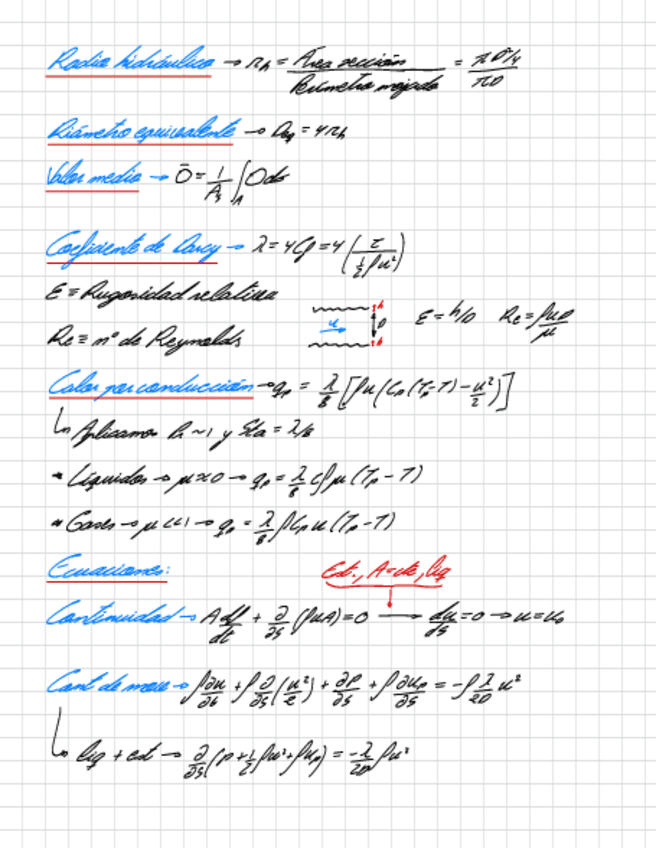 Radio hidráulico → rh = Área sección / Perímetro mojado = πD²/4 / πD
Diámetro equivalente → Deq = 4rh
Valor medio → Ō = 1/As ∫A O ds
Coeficiente de Darcy → λ = 4Cf = 4 (τ / ½ρu²)
ε ≡ Rugosidad relativa
Re ≡ nº de Reynolds
u h D h ε = h/D Re = ρuD/μ
Calor por conducción → qp = λ/8 [ρu(Cp(Tp-T) - u²/2)]
↳ Aplicamos Pr ~ 1 y Sta = λ/8
* Líquidos → μ≈0 → qp = λ/8 cρu (Tp - T)
* Gases → μ<<1 → qp = λ/8 ρCp u (Tp - T)
Ecuaciones:
Est., A=cte, liq
Continuidad → A dρ/dt + ∂/∂s (ρuA) = 0 → du/ds = 0 → u = u0
Cant de mov → ρ ∂u/∂t + ρ ∂/∂s (u²/2) + ∂p/∂s + ρ ∂Up/∂s = -ρ λ/2D u²
↳ liq + est → ∂/∂s (p + ½ρu² + ρUp) = -λ/2D ρu²